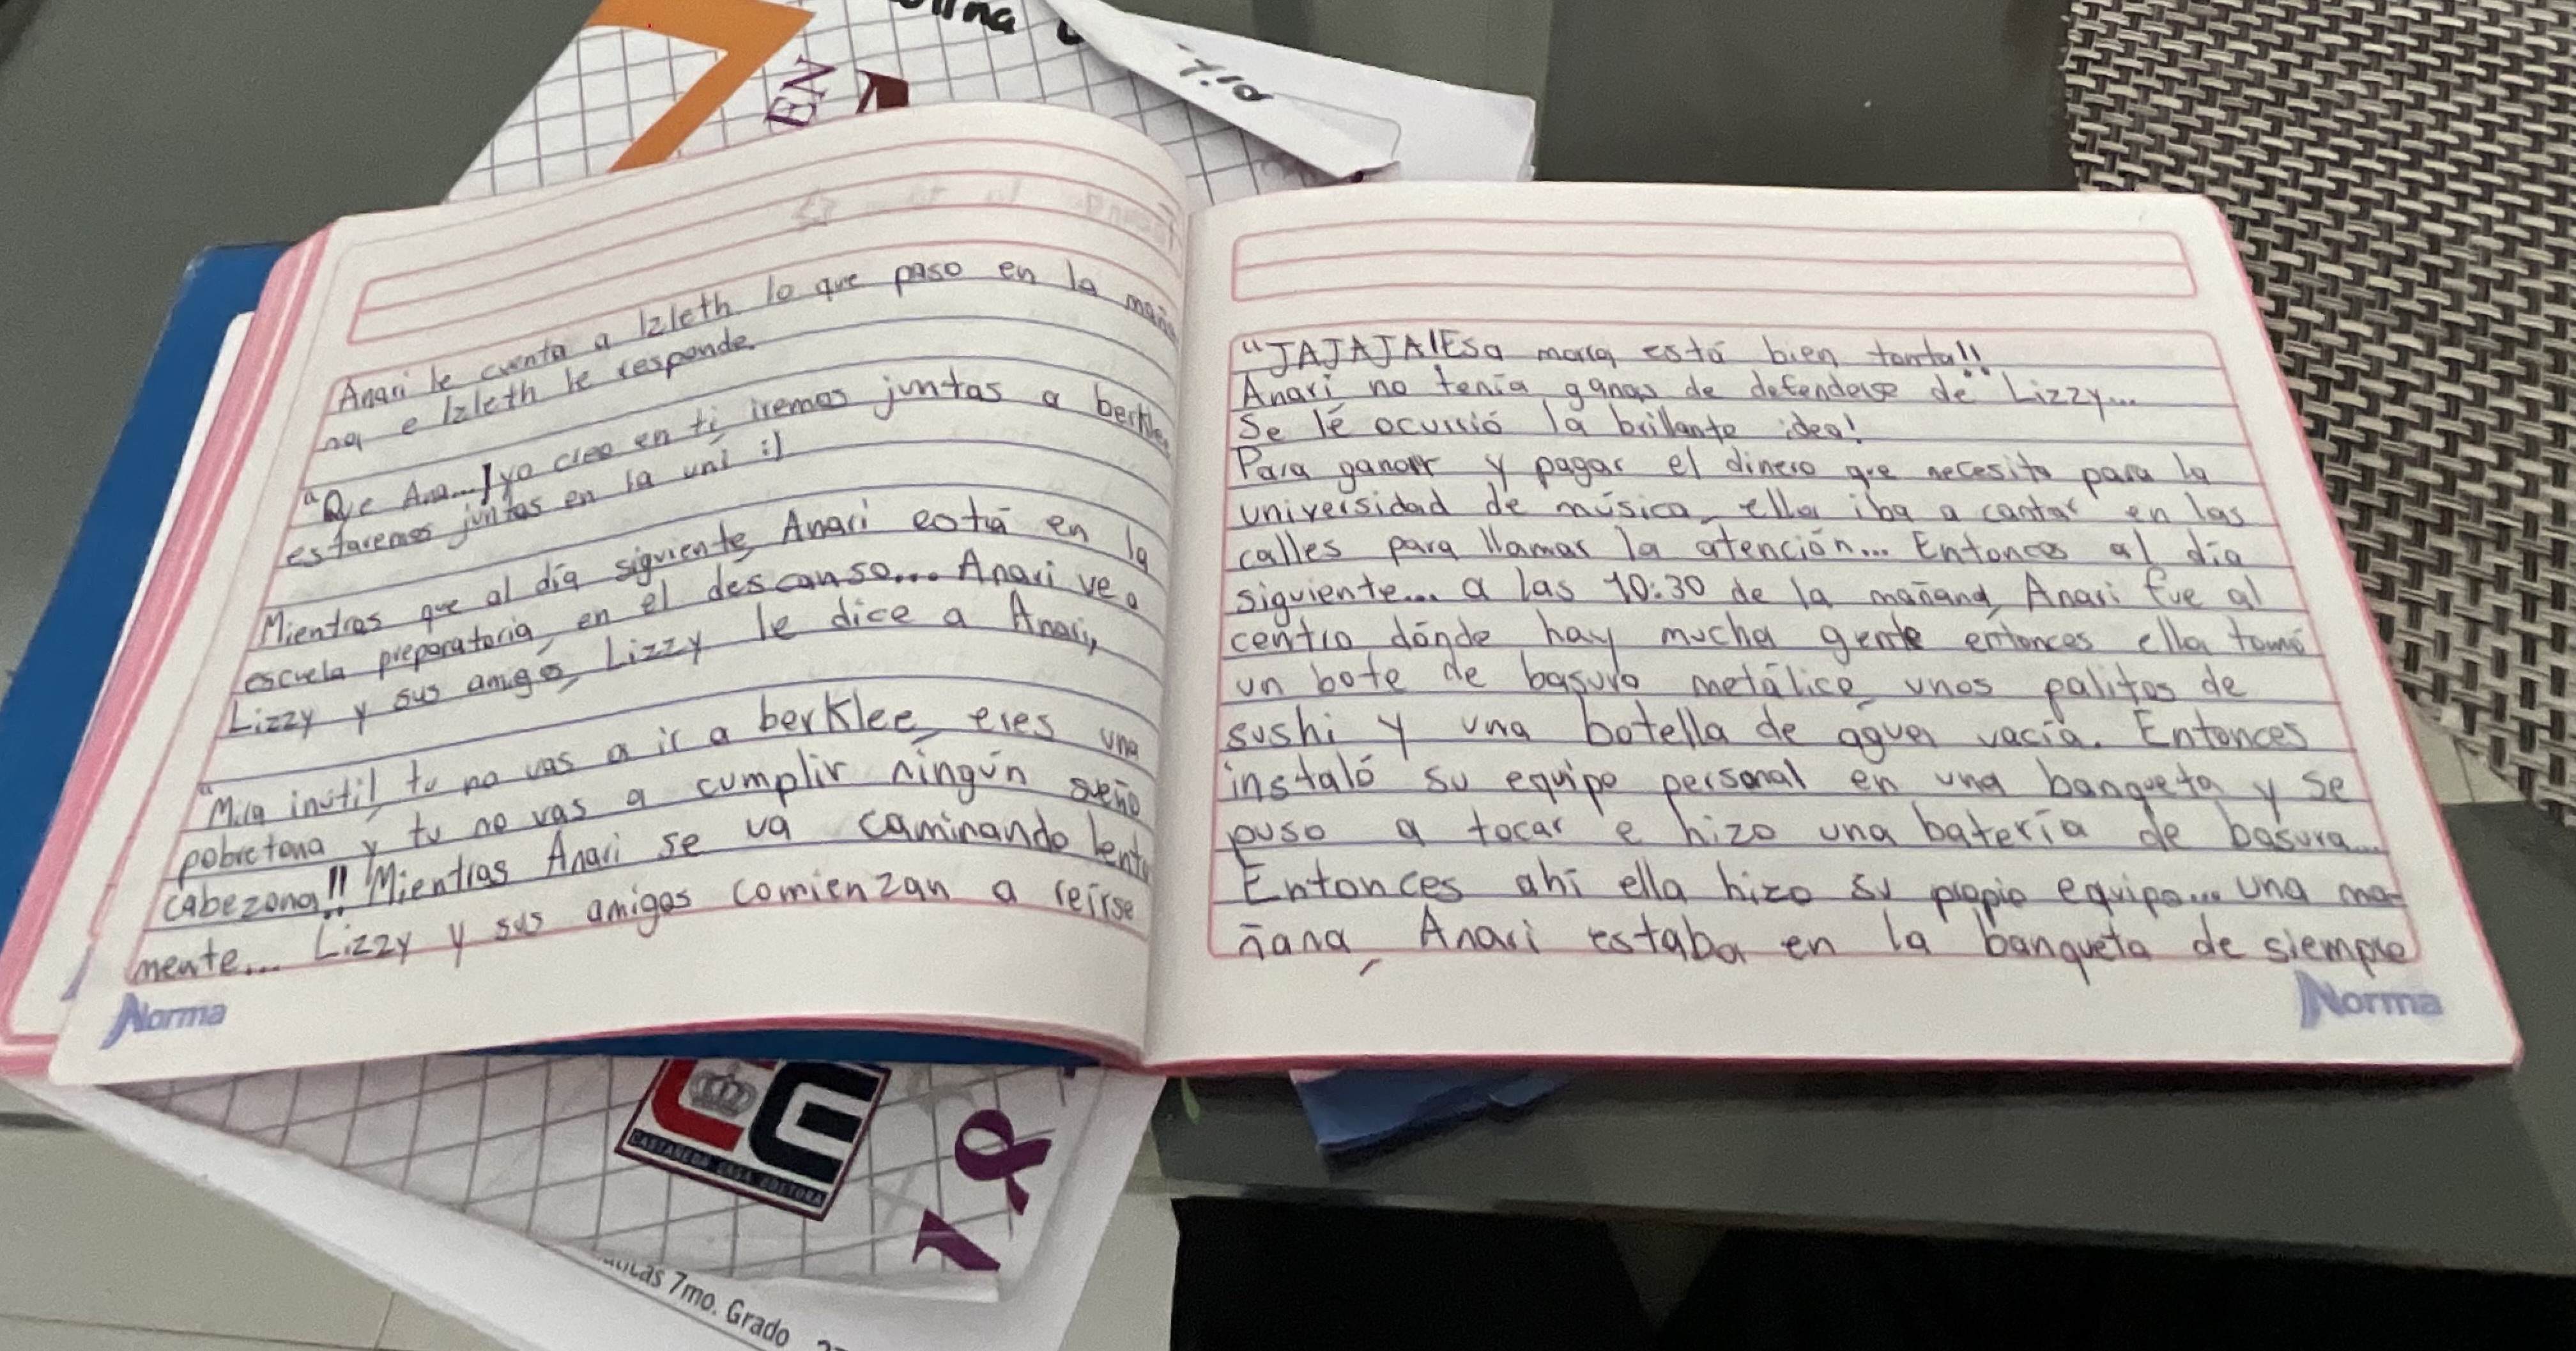 EN
Anari le cuenta a Izleth lo que paso en la maña
na e Izleth le responde.
"Que Ana...! yo creo en ti iremos juntas a berklee
estaremos juntas en la uni :)
Mientras que al día siguiente, Anari está en la
escuela preparatoria, en el descanso... Anari ve a
Lizzy y sus amigos, Lizzy le dice a Anari,
"Mira inútil, tu no vas a ir a berklee, eres una
pobretona y tu no vas a cumplir ningún sueño
cabezona!! Mientras Anari se va caminando lenta
mente... Lizzy y sus amigos comienzan a reírse
Norma
"JAJAJA!Esa morra está bien tonta!!
Anari no tenía ganas de defenderse de Lizzy...
Se lé ocurrió la brillante idea!
Para ganar y pagar el dinero que necesita para la
universidad de música, ella iba a cantar en las
calles para llamar la atención... Entonces al día
siguiente... a las 10:30 de la mañana, Anari fue al
centro dónde hay mucha gente entonces ella tomó
un bote de basura metálico, unos palitos de
sushi y una botella de água vacía. Entonces
instaló su equipo personal en una banqueta y se
puso a tocar e hizo una batería de basura...
Entonces ahí ella hizo su propio equipo... una ma-
ñana, Anari estaba en la banqueta de siempre
Norma
CE
CASTAÑEDA CASA EDITORA
7mo. Grado